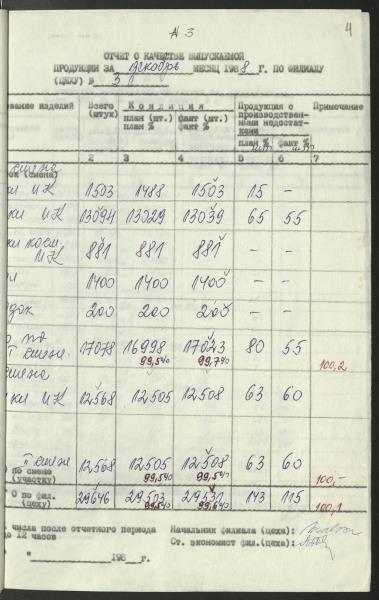 № 3
4
ОТЧЕТ О КАЧЕСТВЕ ВЫПУСКАЕМОЙ
ПРОДУКЦИИ ЗА декабрь МЕСЯЦ 1988 Г. ПО ФИЛИАЛУ
(ЦЕХУ) № 3
ование изделий Всего (штук) Кондиция Продукция с производствен- ными недостат- ками Примечание
план (шт.) план % факт (шт.) факт % план % факт %
2 3 4 5 6 7
смена
ок (смена)
ки ИК 1503 1488 1503 15 -
ки ИК 13094 13029 13039 65 55
ки косм. ИК 881 881 881 - -
1400 1400 1400 - -
док 200 200 200 - -
о по
I смена. 17078 16998 17023 80 55
99,5% 99,7% 100,2
смена
ки ИК 12568 12505 12508 63 60
II смене 12568 12505 12508 63 60
О по смене (участку) 99,5% 99,5% 100,-
О по фил. (цеху) 29646 29503 29531 143 115
99,5% 99,6% 100,1
числа после отчетного периода
до 12 часов
Начальник филиала (цеха):
Ст. экономист фил.(цеха):
" 198 г.